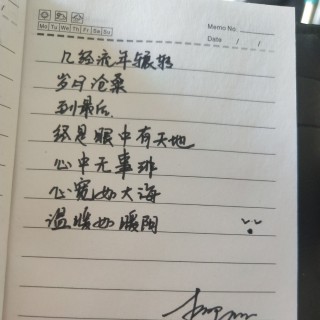 Memo No.
Mo Tu We Th Fr Sa Su
Date / /
几经流年辗转
岁月沧桑
到最后
终是眼中有天地
心中无事非
心宽如大海
温暖如暖阳